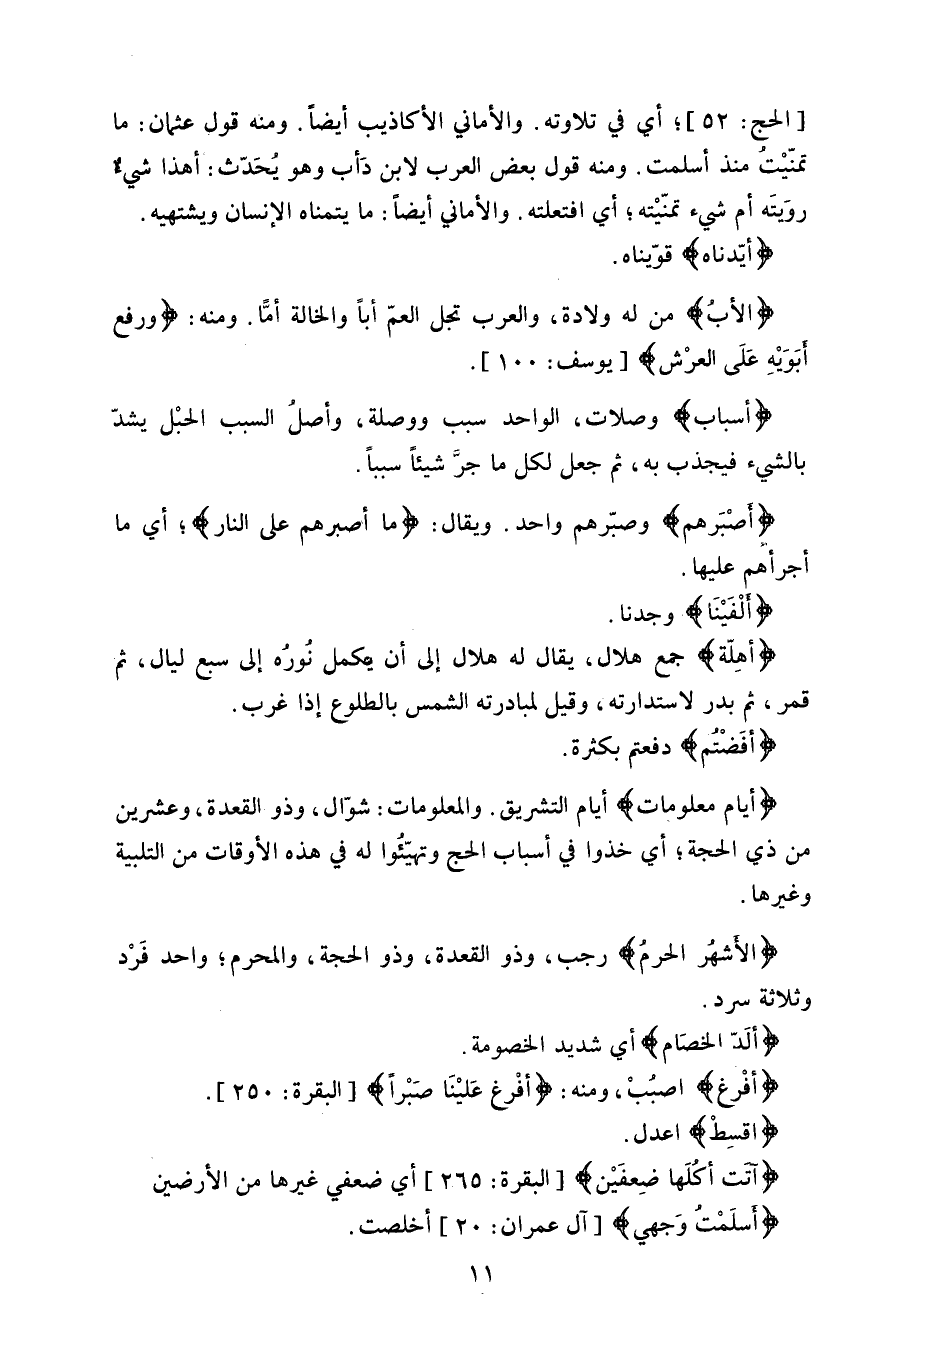 [الحج: ٥٢]؛ أي في تلاوته. والأماني الأكاذيب أيضاً. ومنه قول عثمان: ما
تمنّيْتُ منذ أسلمت. ومنه قول بعض العرب لابن دَأب وهو يُحَدّث: أهذا شيءٌ
رويتَه أم شيء تمنّيْته؛ أي افتعلته. والأماني أيضاً: ما يتمناه الإنسان ويشتهيه.
﴿أيّدناه﴾ قوّيناه.
﴿الأبُ﴾ من له ولادة، والعرب تجل العمّ أباً والخالة أمًّا. ومنه: ﴿ورفع
أَبَوَيْهِ عَلَى العرْش﴾ [يوسف: ١٠٠].
﴿أسباب﴾ وصلات، الواحد سبب ووصلة، وأصلُ السبب الحبْل يشدّ
بالشيء فيجذب به، ثم جعل لكل ما جرَّ شيئاً سبباً.
﴿أَصْبَرهم﴾ وصبّرهم واحد. ويقال: ﴿ما أصبرهم على النار﴾؛ أي ما
أجرأهم عليها.
﴿أَلْفَيْنَا﴾ وجدنا.
﴿أهِلّة﴾ جمع هلال، يقال له هلال إلى أن يكمل نُورُه إلى سبع ليال، ثم
قمر، ثم بدر لاستدارته، وقيل لمبادرته الشمس بالطلوع إذا غرب.
﴿أفَضْتُم﴾ دفعتم بكثرة.
﴿أيام معلومات﴾ أيام التشريق. والمعلومات: شوّال، وذو القعدة، وعشرين
من ذي الحجة؛ أي خذوا في أسباب الحج وتهيّئُوا له في هذه الأوقات من التلبية
وغيرها.
﴿الأَشهُر الحرمُ﴾ رجب، وذو القعدة، وذو الحجة، والمحرم؛ واحد فَرْد
وثلاثة سرد.
﴿ألَدّ الخصَام﴾ أي شديد الخصومة.
﴿أفْرِغ﴾ اصبُبْ، ومنه: ﴿أفْرِغ عَلَيْنَا صَبْراً﴾ [البقرة: ٢٥٠].
﴿اقسِطْ﴾ اعدل.
﴿آتَت أكُلَها ضِعفَيْن﴾ [البقرة: ٢٦٥] أي ضعفي غيرها من الأرضين
﴿أَسلَمْتُ وَجهي﴾ [آل عمران: ٢٠] أخلصت.
١١